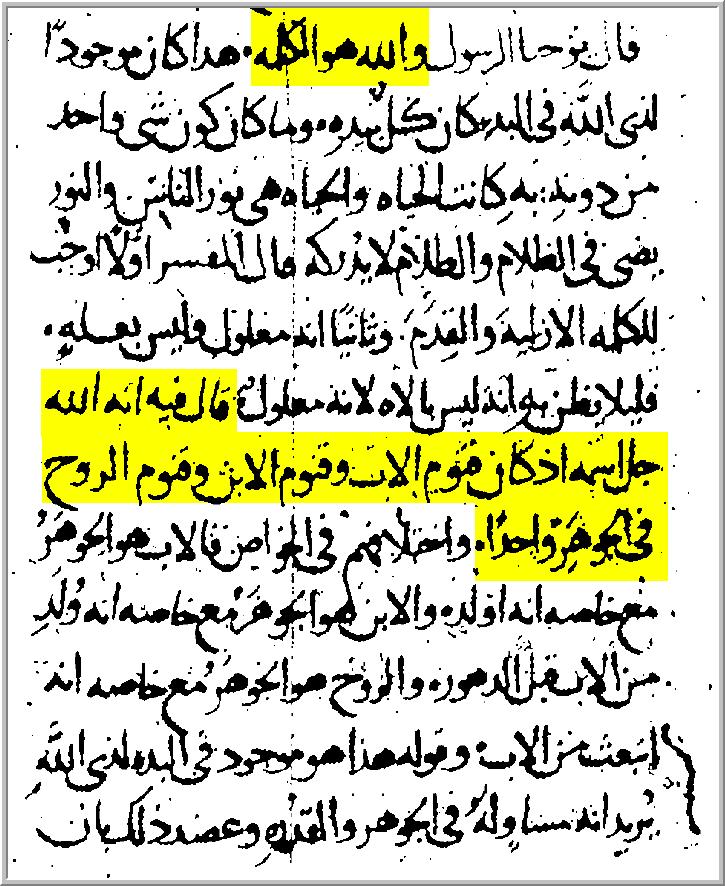 قال يوحنا الرسول والله هو الكلمه. هدا كان موجودًا
لدى الله في البدي كان كل بيده. وما كان كون شي واحد
من دونه: به كانت الحياه والحياه هي نور الناس والنور
يضي في الظلام والظلام لا يدركه قال المفسر اولًا اوجب
للكلمه الازليه والقدم. وثانيًا انه معلول وليس بعله.
فليلا يظن به انه ليس بالاه لانه معلول قال فيه انه الله
جل اسمه اذ كان قنوم الاب وقنوم الابن وقنوم الروح
في الجوهر واحدًا. واختلافهم في الخواص فالاب هو الجوهر
مع خاصه انه اولد. والابن هو الجوهر مع خاصه انه وُلد
من الاب قبل الدهور. والروح هو الجوهر مع خاصه انه
انبعث من الاب. وقوله هدا هو موجود في البدء لدى الله
يُريد انه مساو له في الجوهر والقدم وعضد دلك بان